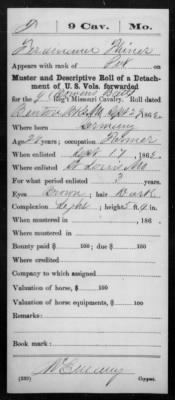 9 Cav. Mo.
Ferdinand Miner
Appears with rank of Pvt
Muster and Descriptive Roll of a Detach-
ment of U. S. Vols. forwarded
for the 9 Bowens Batty
Reg't Missouri Cavalry. Roll dated
Benton Bks Mo Sept 27, 186
Where born Germany
Age y'rs; occupation Farmer
When enlisted Sept 17, 186
Where enlisted St. Louis Mo
For what period enlisted 3 years.
Eyes Brown; hair Dark
Complexion Light; height 5 ft. 9 in.
When mustered in , 186
Where mustered in
Bounty paid $ 100; due $ 100
Where credited
Company to which assigned
Valuation of horse, $ 100
Valuation of horse equipments, $ 100
Remarks:
Book mark:
(339) Copyist.